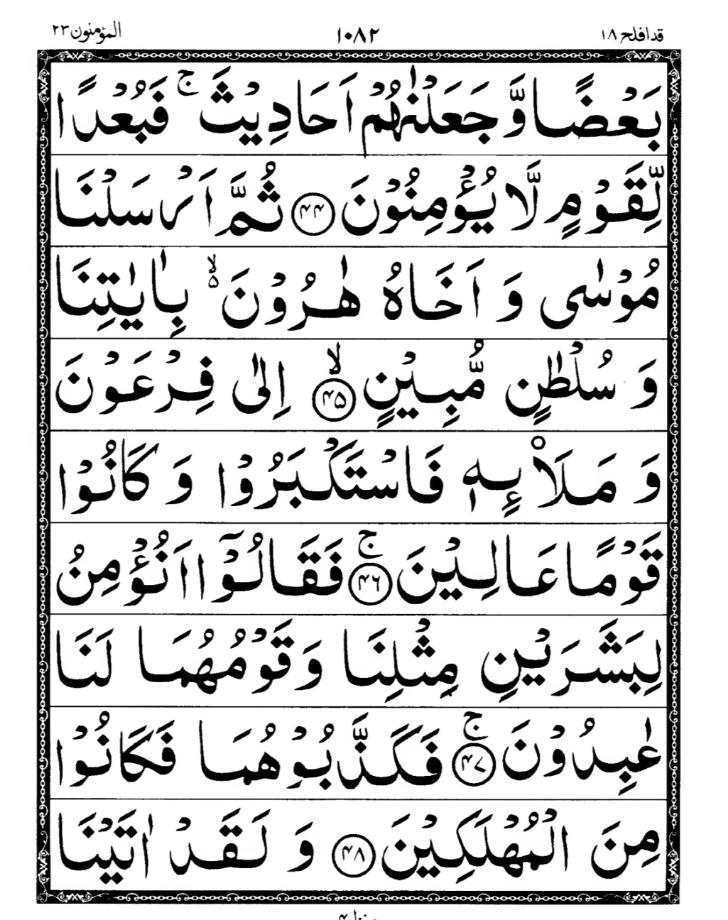 قدافلح ۱۸ ۱۰۸۲ المؤمنون ۲۳
بَعْضًا وَّجَعَلْنٰهُمْ اَحَادِيْثَ ۚ فَبُعْدًا
لِّقَوْمٍ لَّا يُؤْمِنُوْنَ ﴿۴۴﴾ ثُمَّ اَرْسَلْنَا
مُوْسٰى وَ اَخَاهُ هٰرُوْنَ ۙ۬ بِاٰيٰتِنَا
وَ سُلْطٰنٍ مُّبِيْنٍ ۙ﴿۴۵﴾ اِلٰى فِرْعَوْنَ
وَ مَلَا۟ئِهٖ فَاسْتَكْبَرُوْا وَ كَانُوْا
قَوْمًا عَالِيْنَ ۚ﴿۴۶﴾ فَقَالُوْۤا اَنُؤْمِنُ
لِبَشَرَيْنِ مِثْلِنَا وَ قَوْمُهُمَا لَنَا
عٰبِدُوْنَ ۚ﴿۴۷﴾ فَكَذَّبُوْهُمَا فَكَانُوْا
مِنَ الْمُهْلَكِيْنَ ﴿۴۸﴾ وَ لَقَدْ اٰتَيْنَا